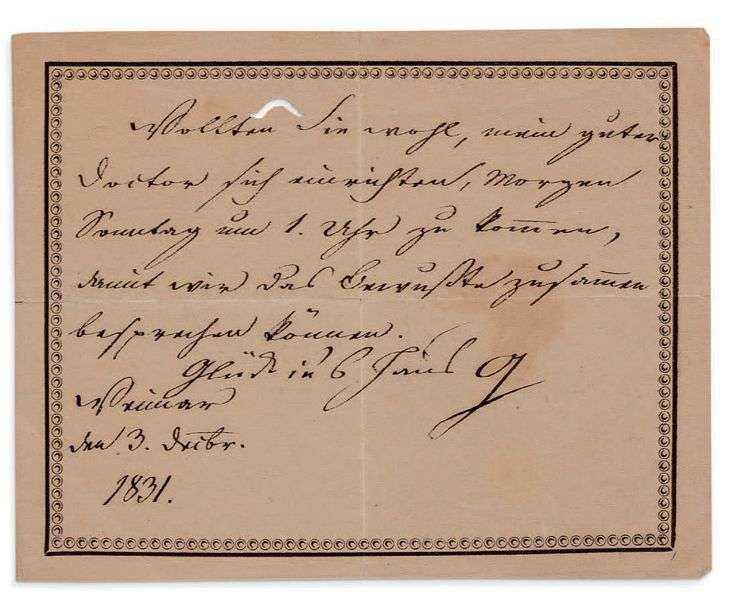 Wollten Sie wohl, mein guter
Doctor sich einrichten, Morgen
Sonntag um 1. Uhr zu kom̅en,
damit wir das Bewußte zusam̅en
besprechen können.
Glück ins Haus G
Weimar
den 3. Decbr.
1831.